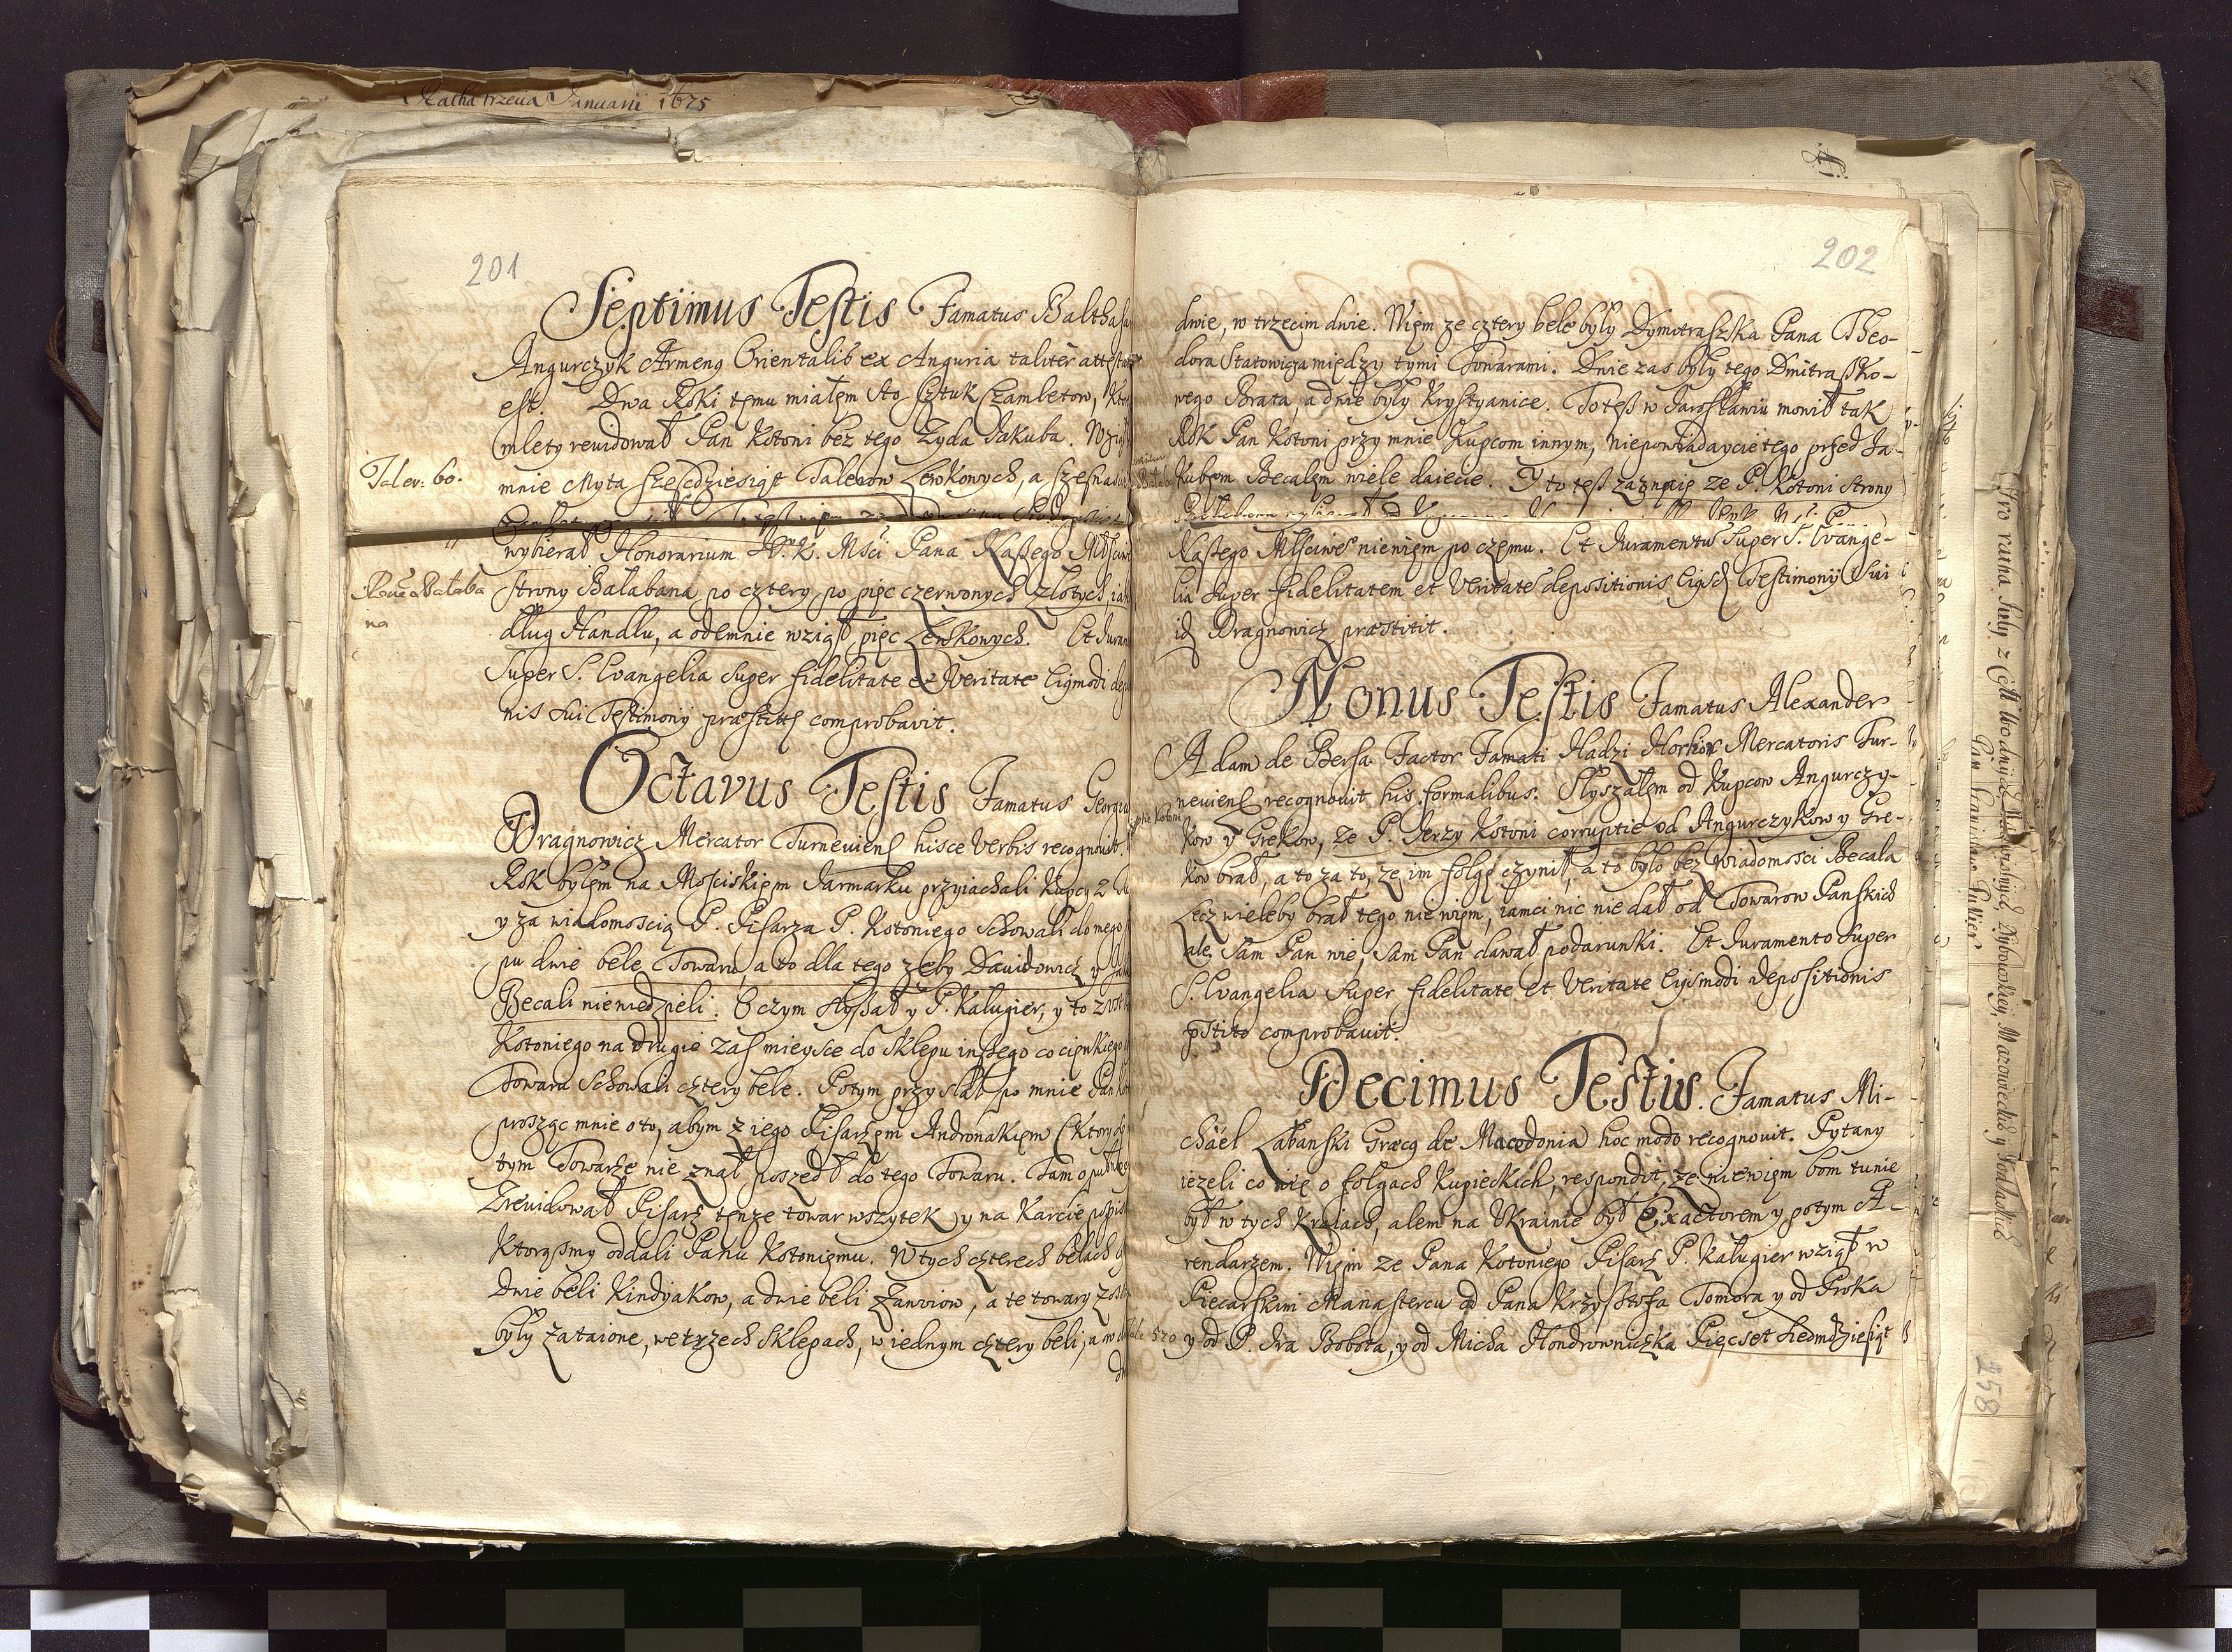 Ratha trzecia Januarii 1675
201
Septimus Testis Famatus Balthasa
Angurczyk Armenę Orientalib ex Anguria taliter attestat
est. Dwa Roki temu miałem sto sztuk Czambletow, kto
mlety rewidował Pan Kotoni bez tego Żyda Jakuba. Wziął
Taler: 60.
mnie Myta sześćdziesiąt Talerow Lewkowych, a szesna
wybierał Honorarium Jeo K. Mści Pana Naszego Młściwe
Balaba
na
strony Bałabana po cztery po pięc czerwonych złotych, iak
dług Handlu, a odemnie wziął pięc Lewkowych. Et Juram
Super S. Evangelia super fidelitate et Veritate Eigmodi de
nis sui Testimony præstitę comprobavit.
Octavus Testis Famatus Georgiu
Dragnowicz Mercator Turneviens hisce verbis recognovit.
Rok byłem na Mościskiem Jarmarku przyiachali Kupcy z
y za wiadomością P. Pisarza P. Kotoniego schowali do mego
pu dwie bele Towaru, a to dla tego żeby Davidowicz y Jaku
Becali niewiedzieli. O czym słyszał y P. Kaługier, y to
Kotoniego na drugie zas mieysce do sklepu inszego co cienkiego
Towaru schowali cztery bele. Potym przysłał po mnie Pan Ko
prosząc mnie o to, abym z iego Pisarzem Andronakiem (ktory
tym Towarze nie znał poszedł do tego Towaru. Tam
Zrewidował Pisarz tenże towar wszytek y na Karcie popis
Ktorąsmy oddali Panu Kotoniemu. W tych czterech belach
Dwie beli Kindyakow, a dwie beli Zawoiow, a te towary
były zataione, we trzech sklepach, w iednym cztery beli, a w
dw
202
dwie, w trzecim dwie. Wiem ze cztery bele były Dymitraszka Pana Theo-
dora Statowicza między tymi Towarami. Dwie zas były tego Dmitraszko-
wego Brata, a dwie były Krystyanice. To tesz w Jarosławiu monił tak
Rok Pan Kotoni przy mnie Kupcom innym, niepowiadaycie tego przed Ja-
kubem Becalem wiele daiecie. Y to tesz zaznaię ze P. Kotoni strony
Naszego Młściwe niewiem po czemu. Et Juramentu Super S. Evange-
lia super fidelitatem et Veritate depositionis Eigsd Testimonij sui
id Dragnowicz præstitit.
Nonus Testis Famatus Alexander
Adam de Bersa Factor Famati Hadzi Horkor Mercatoris Tur-
neviens recognovit his formalibus. Słyszałem od Kupcow Angurczy-
kow y Grekow, ze P. Jerzy Kotoni corruptie od Angurczykow y Gre-
kow brał, a to za to, ze im folgę czynił, a to było bez wiadomosci Becala
Lecz wieleby brał tego nie wiem, iamci nic nie dał od Towarow Panskich
ale Sam Pan wie, Sam Pan dawał podarunki. Et Juramento Super
S. Evangelia Super fidelitate et Veritate Eigsmodi depositionis
pstito comprobavit.
Decimus Testis. Famatus Mi-
chael Łabanski Græcą de Macedonia hoc modo recognovit. Pytany
iezeli co wie o folgach Kupieckich, respondit, ze niewiem bom tu nie
był w tych Kraiach, alem na Ukrainie był Exactorem y potym A-
rendarzem. Wiem ze Pana Kotoniego Pisarz P. Kaługier wziął w
Piecarskim Manastercu od Pana Krzysztofa Tomora y od Proka
570 y od P. Jra Bobota, y od Micha Hondrowniczka Pięcset siedmdziesiąt
258